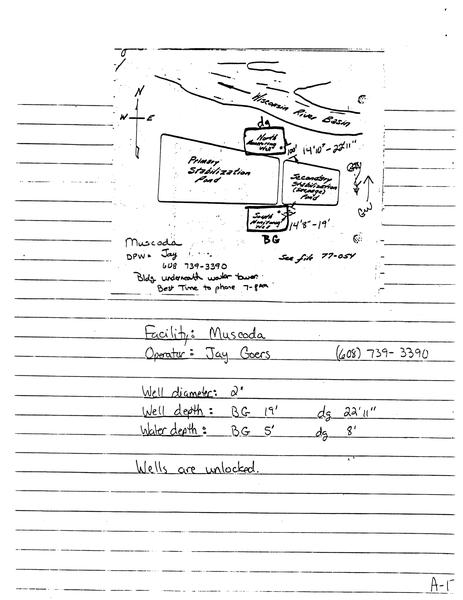 Wisconsin River Basin
N
W E
dg
North
Monitoring
Well
100'
14'10" - 22'11"
Primary
Stabilization
Pond
Secondary
Stabilization
(Seepage)
Pond
GW
South
Monitoring
Well
14'8" - 19'
BG
Muscoda
DPW= Jay
608 739-3390
Bldg underneath water tower
Best Time to phone 7-8AM
See file 77-054
Facility: Muscoda
Operator: Jay Goers (608) 739-3390
Well diameter: 2"
Well depth: BG 19' dg 22'11"
Water depth: BG 5' dg 8'
Wells are unlocked.
A-1